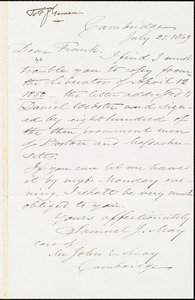 Cambridge
July 21. 1869
Dear Frank.
I find I must
trouble you to copy from
the Liberator of April 12
1850 — the letter addressed to
Daniel Webster and sign-
ed by eight hundred of
the then prominent men
of Boston and Massachu-
setts.
If you can let me have
it by next Monday eve-
ning, I shall be very much
obliged to you.
Yours affectionately
Samuel J. May
care of
Mr John E. May
Cambridge